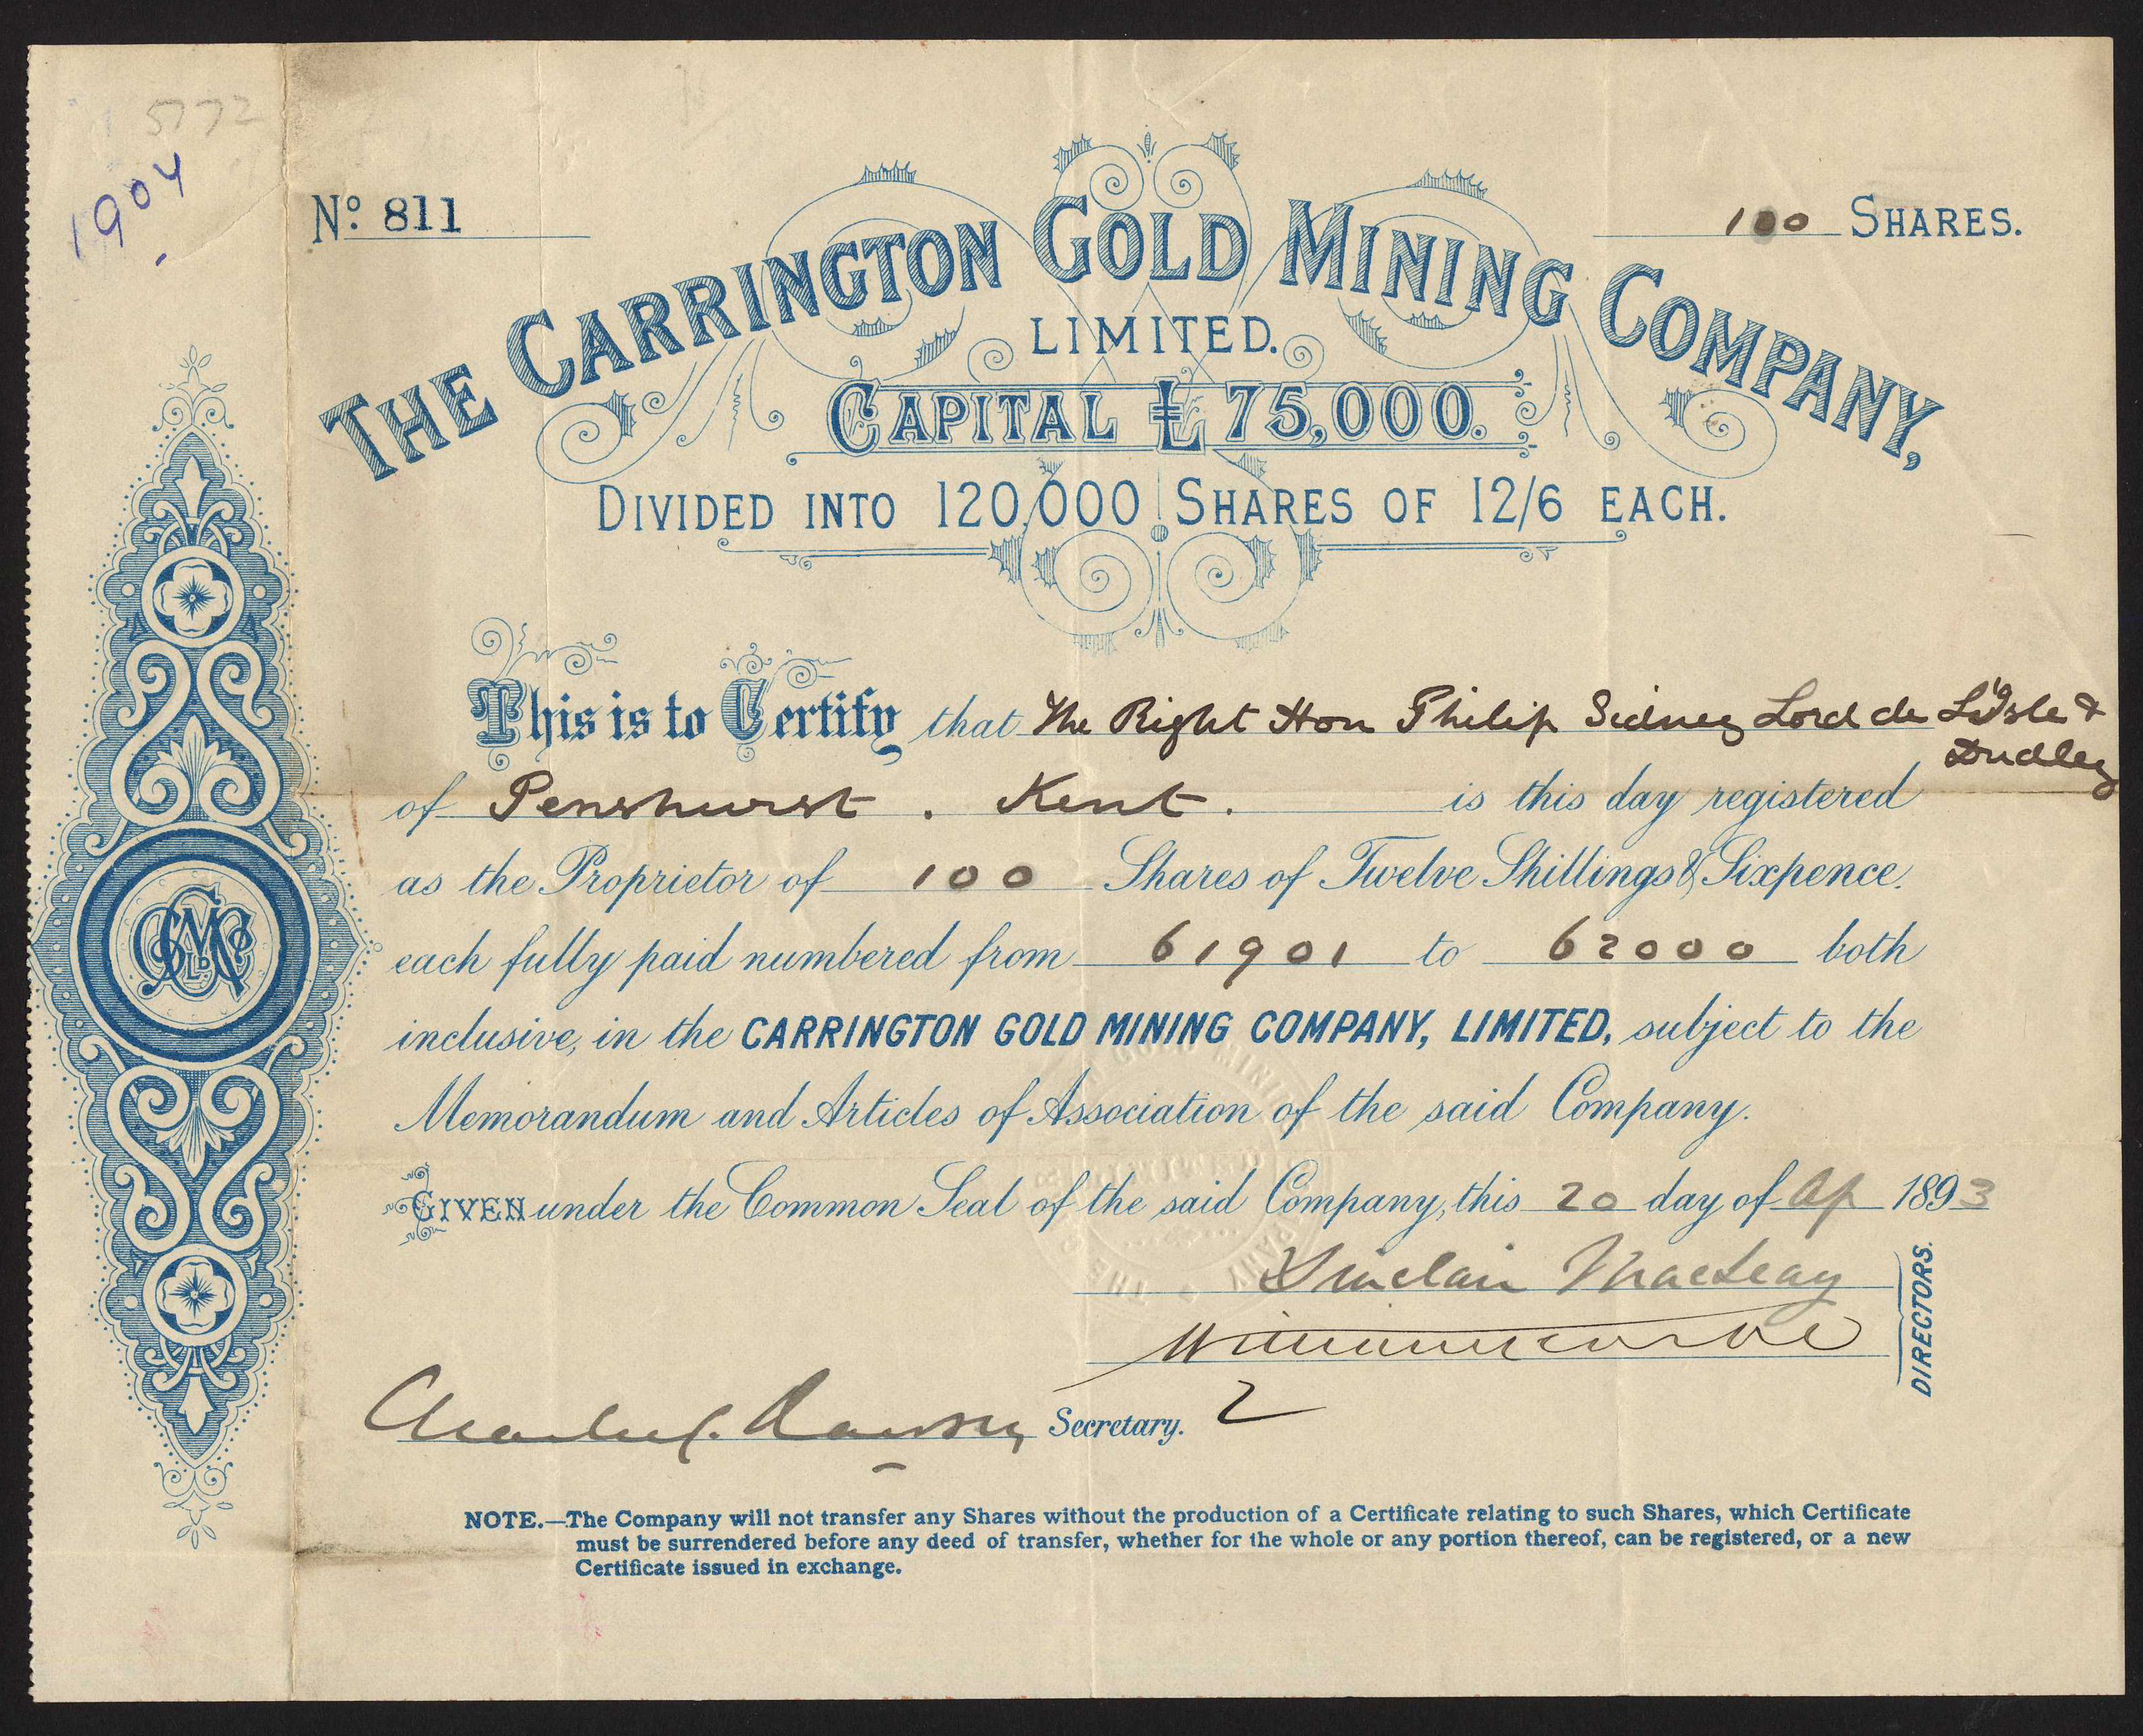 5772
1904
No: 811
100 SHARES.
THE CARRINGTON GOLD MINING COMPANY,
LIMITED.
CAPITAL £75,000.
DIVIDED INTO 120,000 SHARES OF 12/6 EACH.
This is to Certify that The Right Hon Philip Sidney Lord de L'Isle &
Dudley
of Penshurst. Kent. is this day registered
as the Proprietor of 100 Shares of Twelve Shillings & Sixpence.
each fully paid numbered from 61901 to 62000 both
inclusive, in the CARRINGTON GOLD MINING COMPANY, LIMITED, subject to the
Memorandum and Articles of Association of the said Company.
GIVEN under the Common Seal of the said Company, this 20 day of Ap 1893
Sinclair MacLeay
DIRECTORS.
Secretary.
NOTE.—The Company will not transfer any Shares without the production of a Certificate relating to such Shares, which Certificate
must be surrendered before any deed of transfer, whether for the whole or any portion thereof, can be registered, or a new
Certificate issued in exchange.